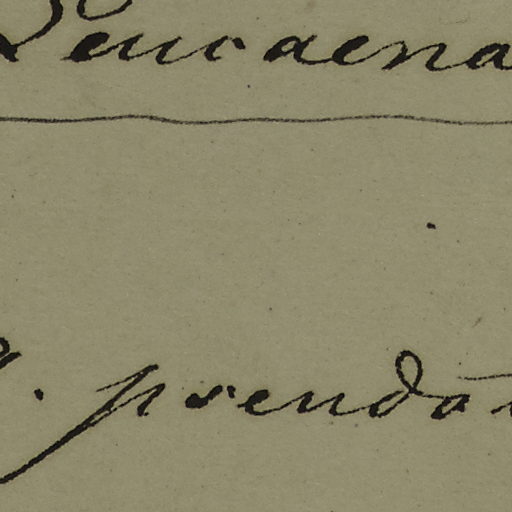 Leucaena
. pseudo